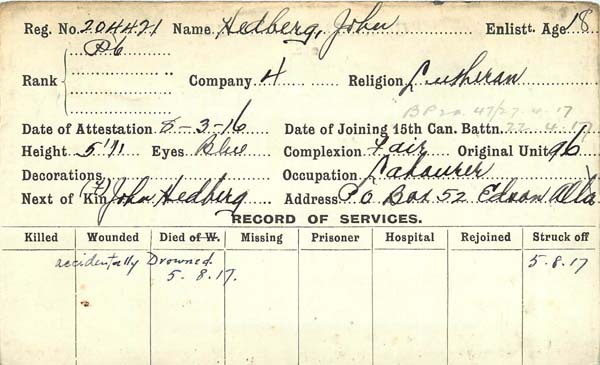 Reg. No. 204421 Name Hedberg, John Enlistt. Age 18
Rank { Pte Company 4 Religion Lutheran
47/27.4.17
Date of Attestation 8-3-16 Date of Joining 15th Can. Battn. 22.4.17
Height 5'11 Eyes Blue Complexion Fair Original Unit 96
Decorations Occupation Labourer
Next of Kin (F) John Hedberg Address P.O Box 52 Alta
RECORD OF SERVICES.
Killed Wounded Died of W. Missing Prisoner Hospital Rejoined Struck off
accidentally Drowned. 5.8.17
5.8.17.